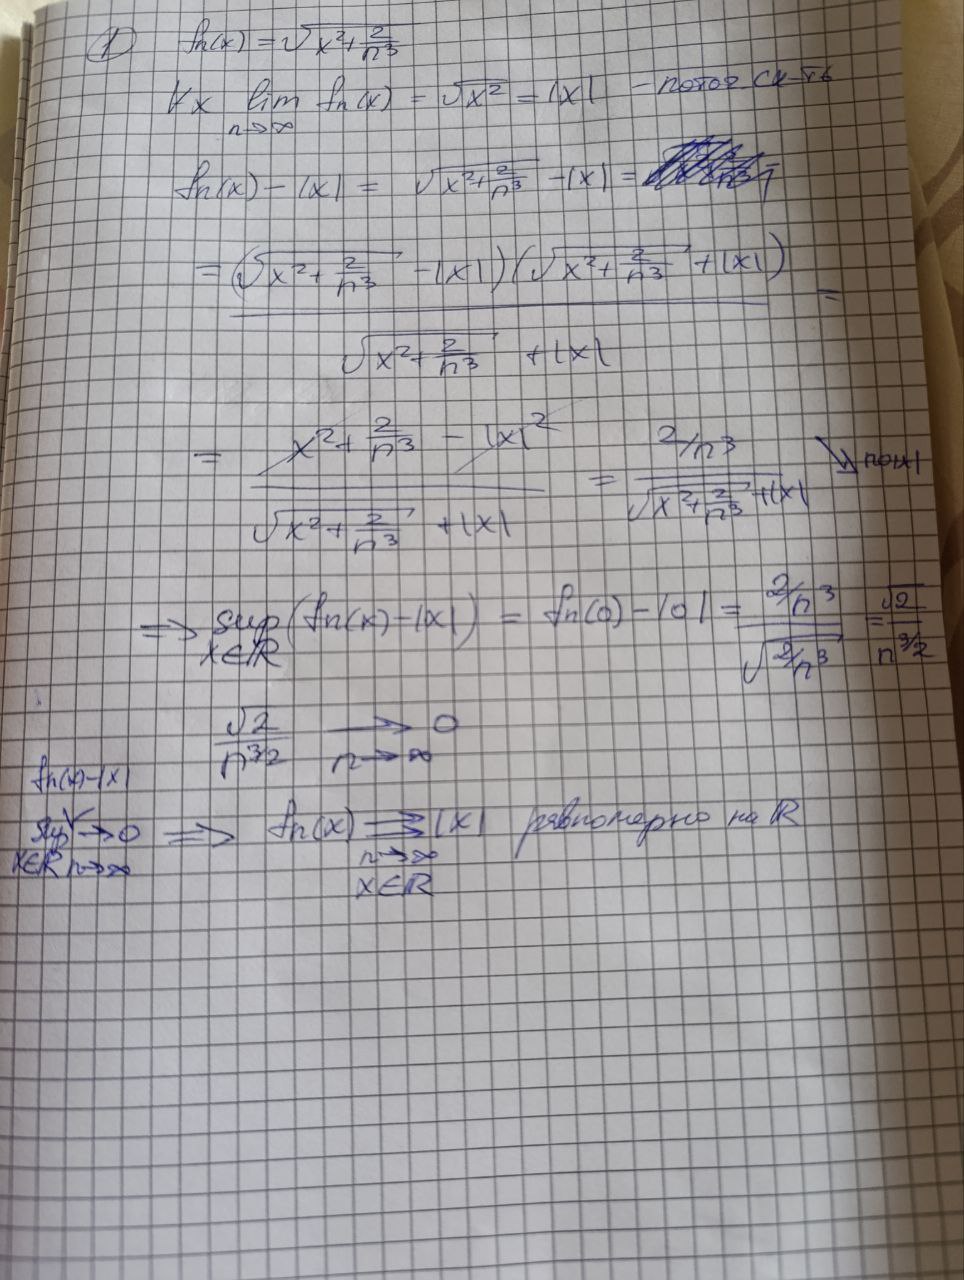 ① fn(x) = √(x²+2/n³)
∀x lim fn(x) = √x² = |x| - поточ. сх-ть
n→∞
fn(x) - |x| = √(x²+2/n³) - |x| =
= (√(x²+2/n³) - |x|)(√(x²+2/n³) + |x|) / (√(x²+2/n³) + |x|) =
= (x²+2/n³ - |x|²) / (√(x²+2/n³) + |x|) = (2/n³) / (√(x²+2/n³) + |x|) ↘ по |x|
=> sup (fn(x) - |x|) = fn(0) - |0| = (2/n³) / √(2/n³) = √2 / n^(3/2)
x∈ℝ
√2 / n^(3/2) → 0
n→∞
fn(x)-|x|
sup → 0 => fn(x) ⇉ |x| равномерно на ℝ
x∈ℝ n→∞ n→∞
x∈ℝ